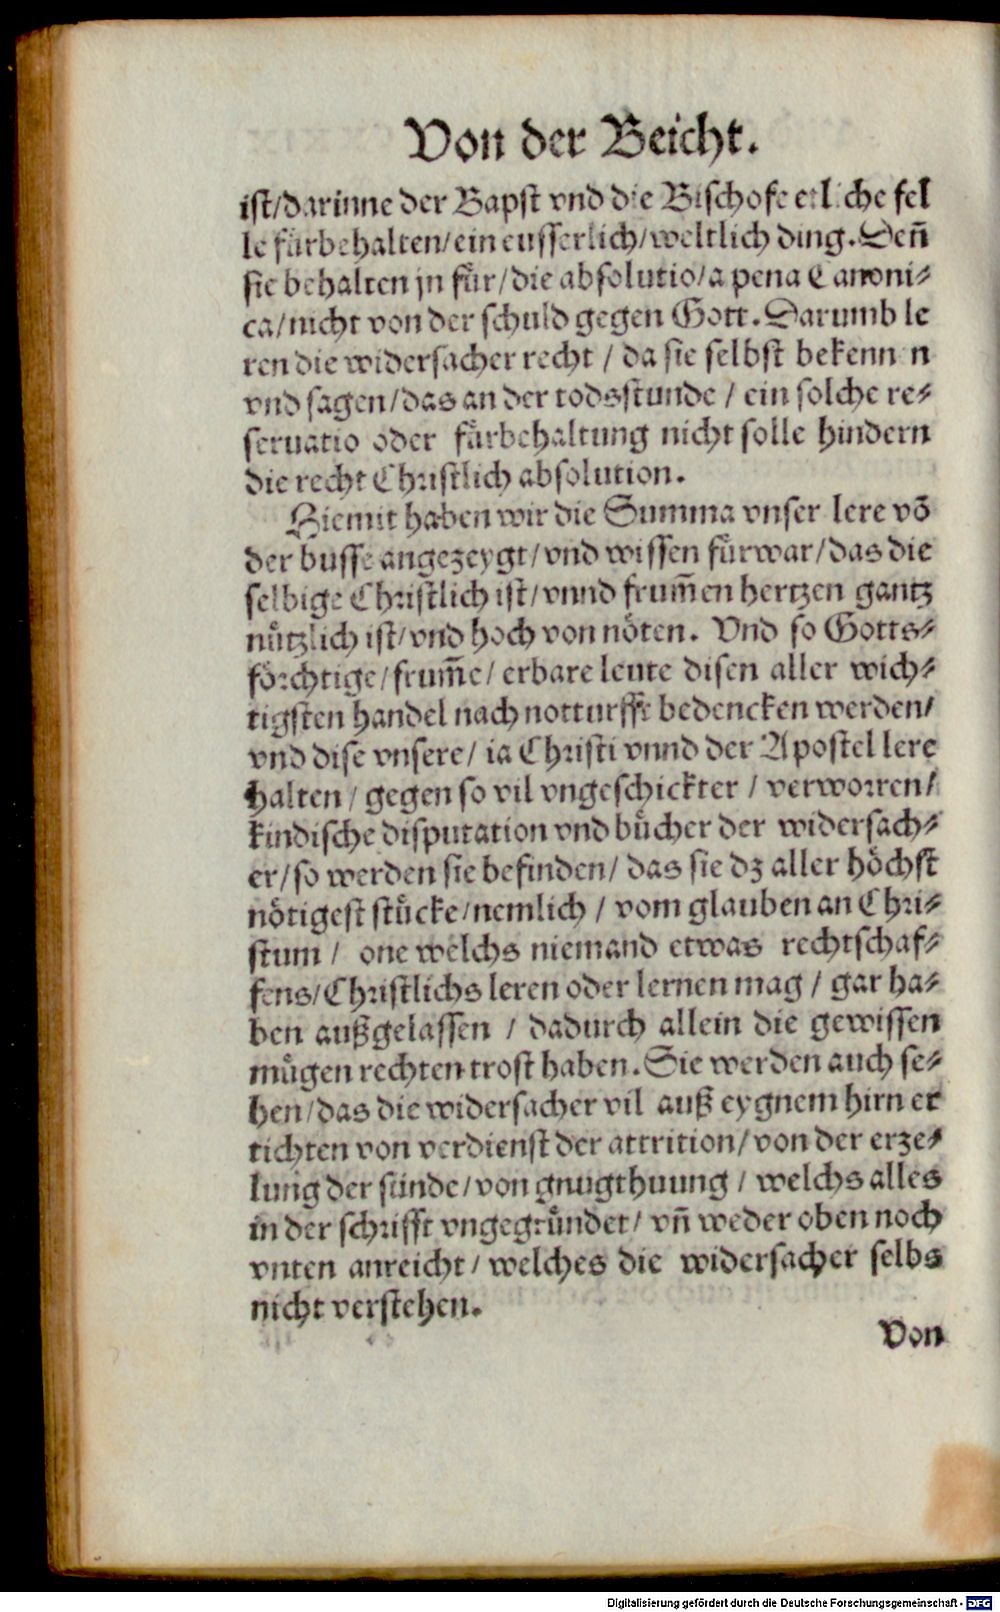 Von der Beicht.
ist/darinne der Bapst vnd die Bischofe etliche fel
le fürbehalten/ein eusserlich/weltlich ding. Deñ
sie behalten jn für/die absolutio/a pena Canoni⸗
ca/nicht von der schuld gegen Gott. Darumb le
ren die widersacher recht / da sie selbst bekennen
vnd sagen/das an der todsstunde / ein solche re⸗
seruatio oder fürbehaltung nicht solle hindern
die recht Christlich absolution.
Hiemit haben wir die Summa vnser lere võ
der busse angezeygt/vnd wissen fürwar/das die
selbige Christlich ist/vnnd frum̃en hertzen gantz
nützlich ist/vnd hoch von nöten. Vnd so Gotts⸗
förchtige/frum̃e/ erbare leute disen aller wich⸗
tigsten handel nach notturfft bedencken werden/
vnd dise vnsere/ ia Christi vnnd der Apostel lere
halten / gegen so vil vngeschickter / verworren/
kindische disputation vnd bücher der widersach⸗
er/so werden sie befinden/ das sie dz aller höchst
nötigest stücke/nemlich / vom glauben an Chri⸗
stum / one welchs niemand etwas rechtschaf⸗
fens/Christlichs leren oder lernen mag / gar ha⸗
ben außgelassen / dadurch allein die gewissen
mügen rechten trost haben. Sie werden auch se⸗
hen/das die widersacher vil auß eygnem hirn er
tichten von verdienst der attrition/von der erze⸗
lung der sünde/von gnugthuung / welchs alles
in der schrifft vngegründet/ vñ weder oben noch
vnten anreicht / welches die widersacher selbs
nicht verstehen.
Von
Digitalisierung gefördert durch die Deutsche Forschungsgemeinschaft - DFG